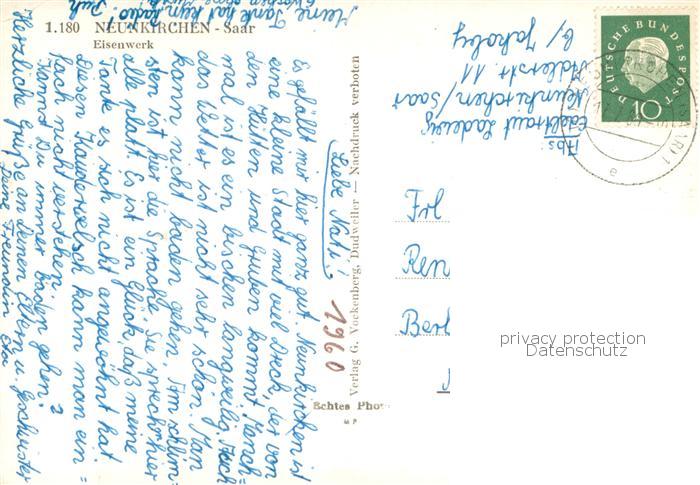 1.180 NEUNKIRCHEN - Saar
Eisenwerk
Liebe Nati!
Es gefällt mir hier ganz gut. Neunkirchen ist
eine kleine Stadt mit viel Dreck, der von
den Hütten und Gruben kommt. Manch=
mal ist es ein bischen langweilig. Auch
das Wetter ist nicht sehr schön. Man
kann nicht baden gehen. Am schlim=
sten ist hier die Sprache. Sie sprechen hier
alle platt. Es ist ein Glück, daß meine
Tante es sich nicht angewöhnt hat.
Diesen Kauderwelsch kann man ein=
fach nicht verstehen.
Kannst Du immer baden gehen?
Herzliche Grüße an Deinen Eltern u. Geschwister
Deine Freundin Eva
Meine Tante hat kein Radio.
1960
Verlag G. Vockenberg, Dudweiler — Nachdruck verboten
Echtes Pho
Abs:
Edeltraut Ladewig
Neunkirchen/Saar
Adlerstr. 11
b/ Jakoby
DEUTSCHE BUNDESPOST
10
(SAAR) 1
e
Frl
Ren
Berl
privacy protection
Datenschutz